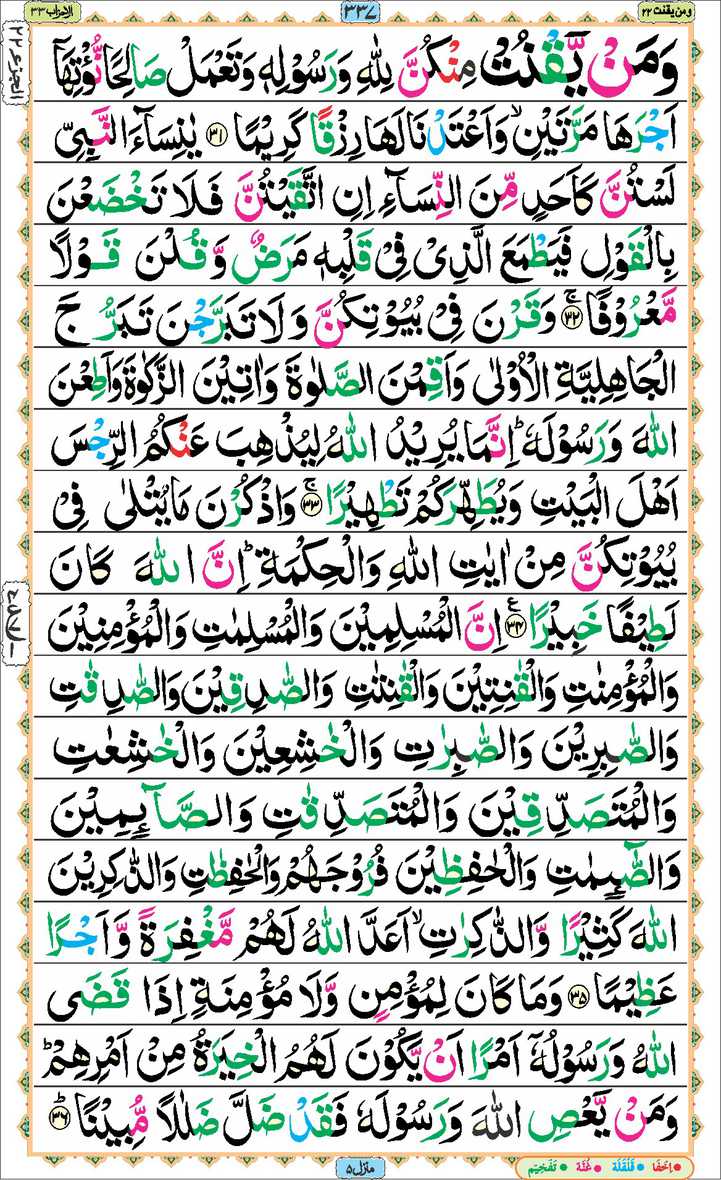 ومن یقنت ٢٢
٣٣٧
الاحزاب ٣٣
وَمَنْ يَّقْنُتْ مِنْكُنَّ لِلّٰهِ وَرَسُوْلِهٖ وَتَعْمَلْ صَالِحًا نُّؤْتِهَاۤ
اَجْرَهَا مَرَّتَيْنِ ۙ وَاَعْتَدْنَا لَهَا رِزْقًا كَرِيْمًا ﴿٣١﴾ يٰنِسَآءَ النَّبِىِّ
لَسْتُنَّ كَاَحَدٍ مِّنَ النِّسَآءِ اِنِ اتَّقَيْتُنَّ فَلَا تَخْضَعْنَ
بِالْقَوْلِ فَيَطْمَعَ الَّذِىْ فِىْ قَلْبِهٖ مَرَضٌ وَّقُلْنَ قَوْلًا
مَّعْرُوْفًا ۚ ﴿٣٢﴾ وَقَرْنَ فِىْ بُيُوْتِكُنَّ وَلَا تَبَرَّجْنَ تَبَرُّجَ
الْجَاهِلِيَّةِ الْاُوْلٰى وَاَقِمْنَ الصَّلٰوةَ وَاٰتِيْنَ الزَّكٰوةَ وَاَطِعْنَ
اللّٰهَ وَرَسُوْلَهٗ ؕ اِنَّمَا يُرِيْدُ اللّٰهُ لِيُذْهِبَ عَنْكُمُ الرِّجْسَ
اَهْلَ الْبَيْتِ وَيُطَهِّرَكُمْ تَطْهِيْرًا ۚ ﴿٣٣﴾ وَاذْكُرْنَ مَا يُتْلٰى فِىْ
بُيُوْتِكُنَّ مِنْ اٰيٰتِ اللّٰهِ وَالْحِكْمَةِ ؕ اِنَّ اللّٰهَ كَانَ
لَطِيْفًا خَبِيْرًا ﴿٣٤﴾ ع اِنَّ الْمُسْلِمِيْنَ وَالْمُسْلِمٰتِ وَالْمُؤْمِنِيْنَ
وَالْمُؤْمِنٰتِ وَالْقٰنِتِيْنَ وَالْقٰنِتٰتِ وَالصّٰدِقِيْنَ وَالصّٰدِقٰتِ
وَالصّٰبِرِيْنَ وَالصّٰبِرٰتِ وَالْخٰشِعِيْنَ وَالْخٰشِعٰتِ
وَالْمُتَصَدِّقِيْنَ وَالْمُتَصَدِّقٰتِ وَالصَّآئِمِيْنَ
وَالصّٰٓئِمٰتِ وَالْحٰفِظِيْنَ فُرُوْجَهُمْ وَالْحٰفِظٰتِ وَالذّٰكِرِيْنَ
اللّٰهَ كَثِيْرًا وَّالذّٰكِرٰتِ ۙ اَعَدَّ اللّٰهُ لَهُمْ مَّغْفِرَةً وَّاَجْرًا
عَظِيْمًا ﴿٣٥﴾ وَمَا كَانَ لِمُؤْمِنٍ وَّلَا مُؤْمِنَةٍ اِذَا قَضَى
اللّٰهُ وَرَسُوْلُهٗۤ اَمْرًا اَنْ يَّكُوْنَ لَهُمُ الْخِيَرَةُ مِنْ اَمْرِهِمْ ؕ
وَمَنْ يَّعْصِ اللّٰهَ وَرَسُوْلَهٗ فَقَدْ ضَلَّ ضَلٰلًا مُّبِيْنًا ؕ ﴿٣٦﴾
منزل ۵
• اِخفَا • قَلْقَلَه • غُنَّه • تَفْخِيْم